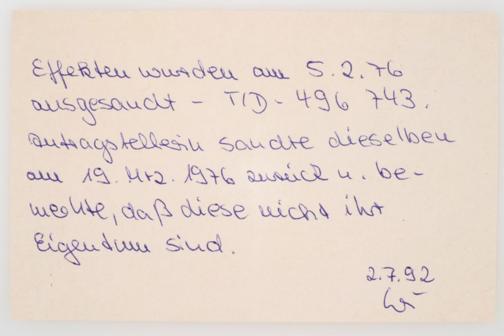 Effekten wurden am 5.2.76
ausgesandt - T/D - 496 743.
Antragstellerin sandte dieselben
am 19. Mrz. 1976 zurück u. be-
merkte, daß diese nicht ihr
Eigentum sind.
2.7.92